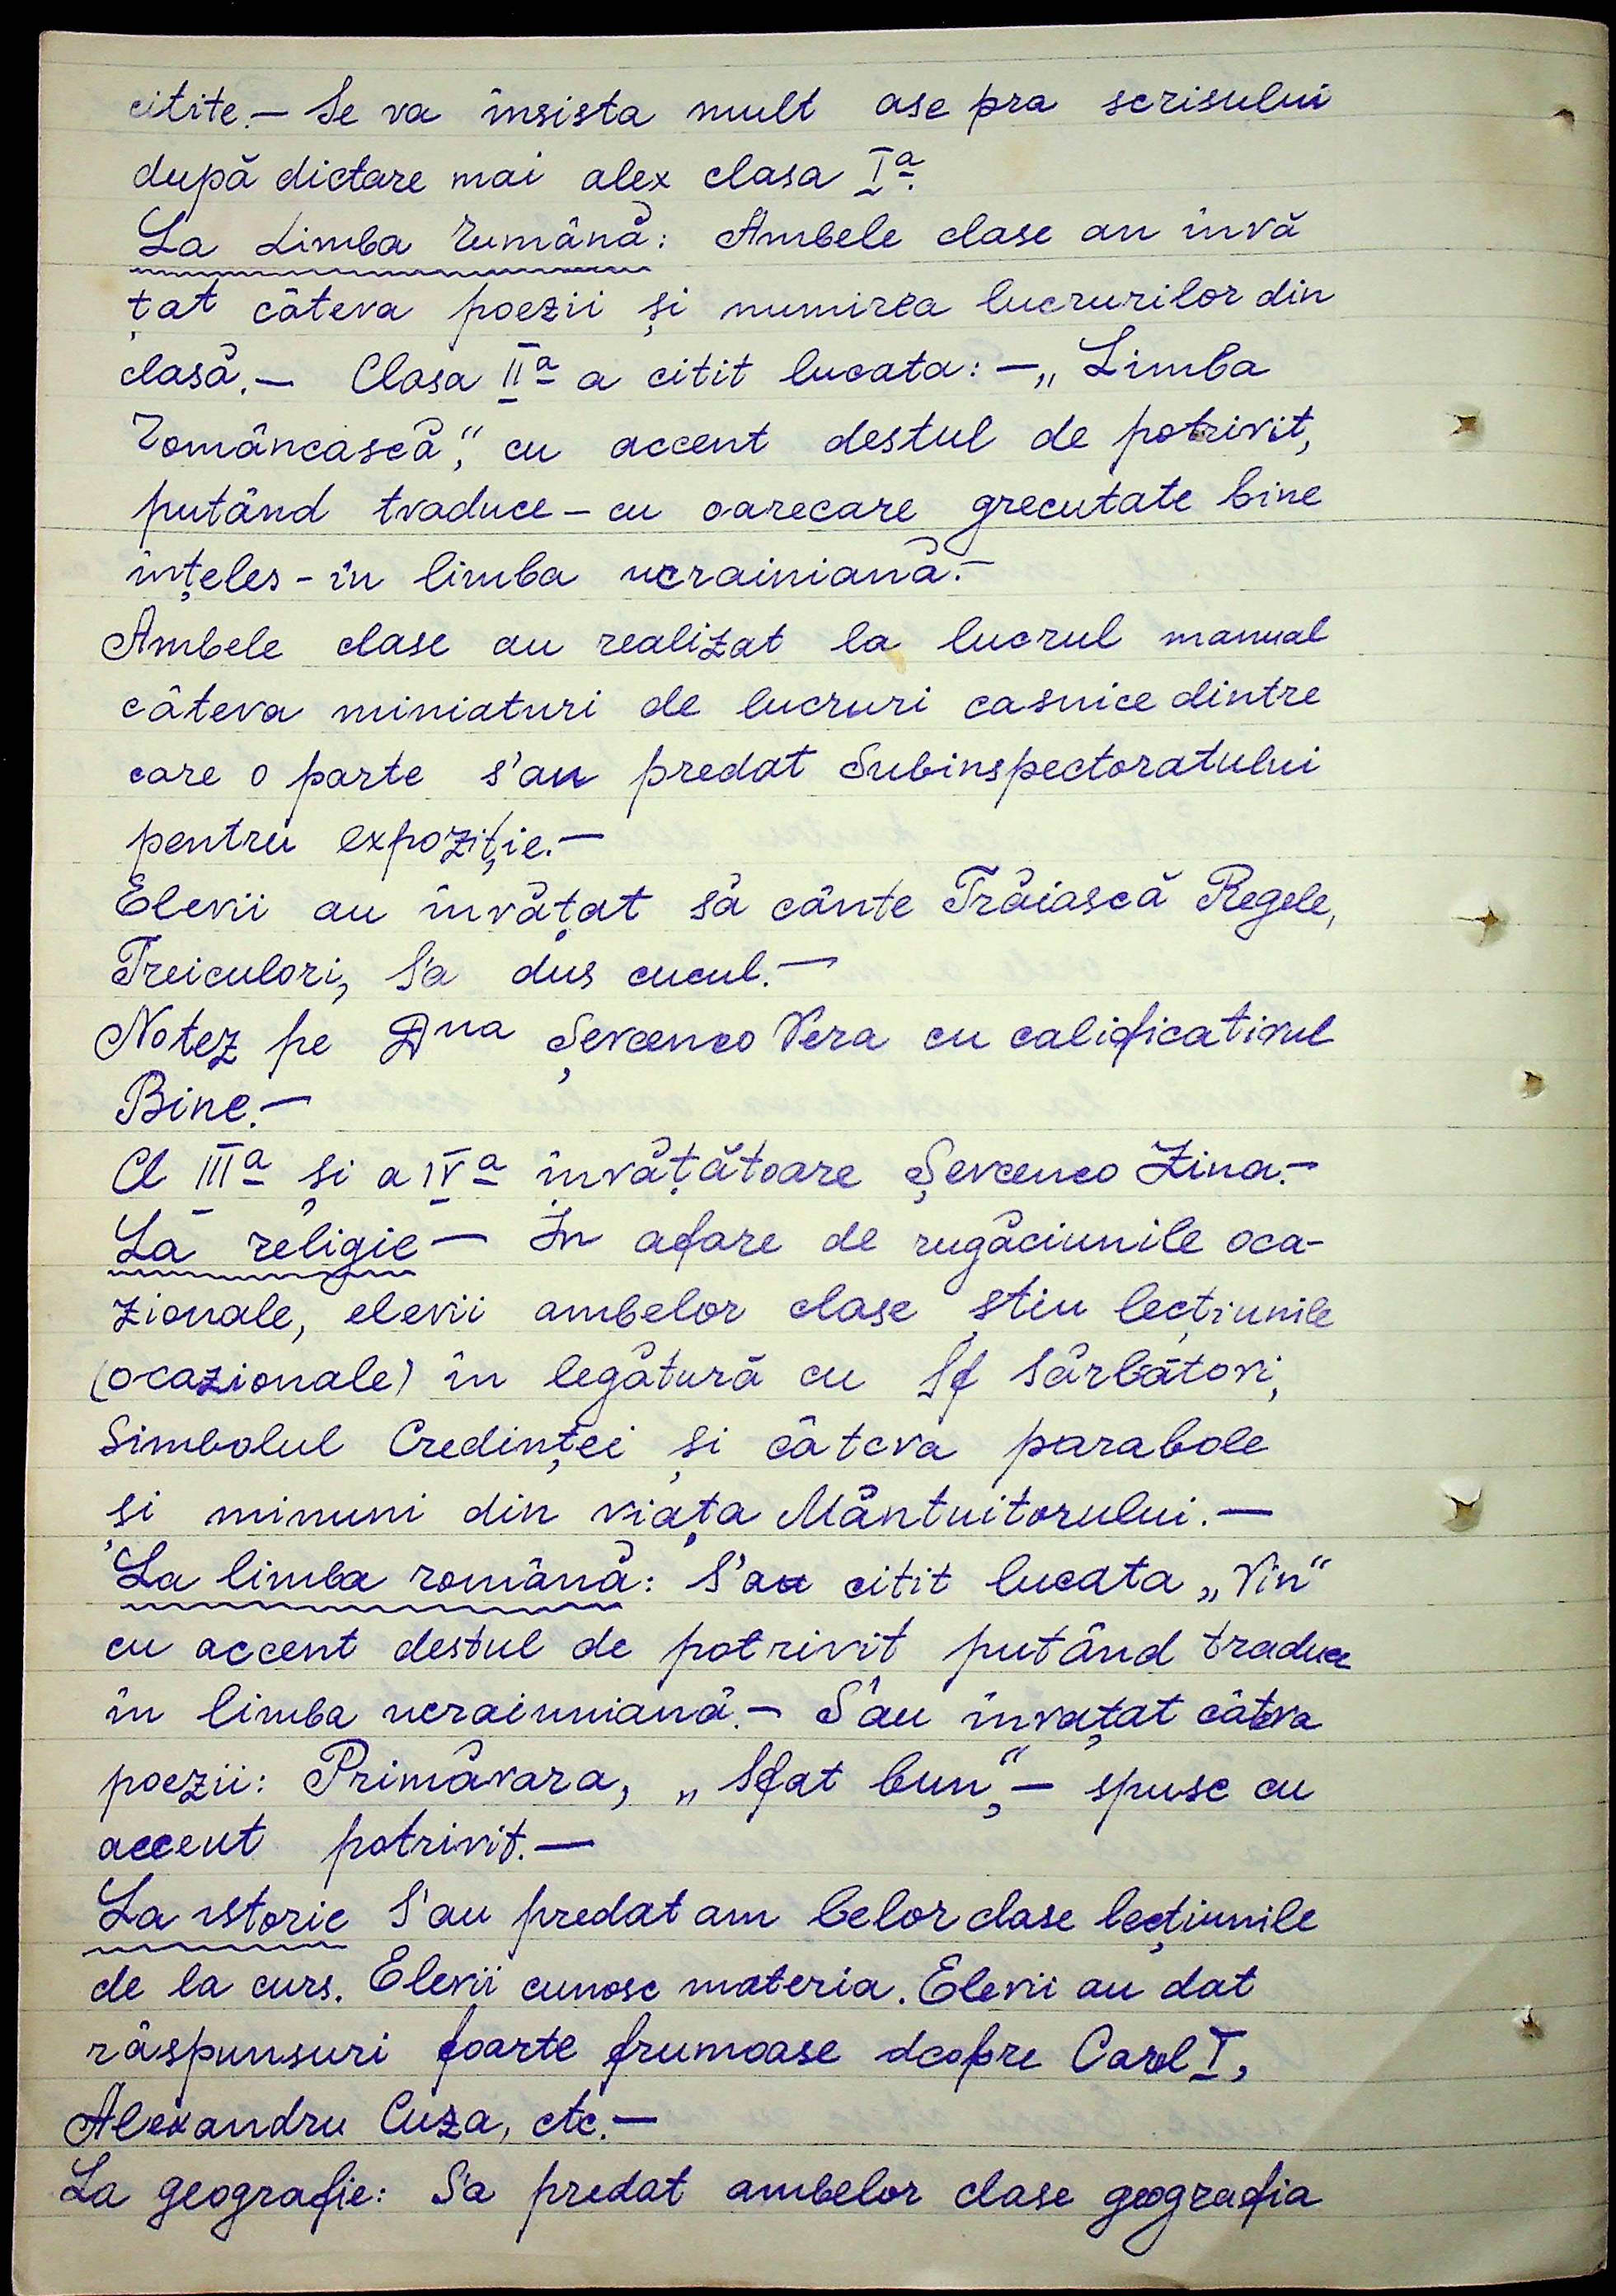 citite.— Se va însista mult ase pra scrisului
după dictare mai alex clasa Iª.
La Limba Rumână: Ambele clase an învă
țat câteva poezii și numirea lucrurilor din
clasă.— Clasa IIª a citit lucata: —„ Limba
Româncască“, cu accent destul de potrivit,
putând traduce – cu oarecare grecutate bine
înțeles - în limba ucrainiană.—
Ambele clase au realizat la lucrul manual
câteva miniaturi de lucruri casnice dintre
care o parte s'au predat Subinspectoratului
pentru expoziție.—
Elevii au învățat să cânte Trăiască Regele,
Treiculori, S'a dus cucul.—
Notez pe Dna Șevcenco Vera cu calificativul
Bine.—
Cl IIIª și a IVª învățătoare Șevcenco Zina.—
La religie — În afare de rugăciunile oca-
zionale, elevii ambelor clase știu lecțiunile
(ocazionale) în legătură cu Sf Sărbători,
Simbolul Credinței și câteva parabole
și minuni din viața Mântuitorului.—
La limba română: S'au citit lucata „Vin“
cu accent destul de potrivit putând traduce
în limba ucrainniană.— S'au învațat câteva
poezii: Primăvara, „ Sfat bun“,— spuse cu
accent potrivit.—
La istorie S'au predat am belor clase lecțiunile
de la curs. Elevii cunosc materia. Elevii au dat
răspunsuri foarte frumoase despre Carol I,
Alexandru Cuza, etc.—
La geografie: S'a predat ambelor clase geografia